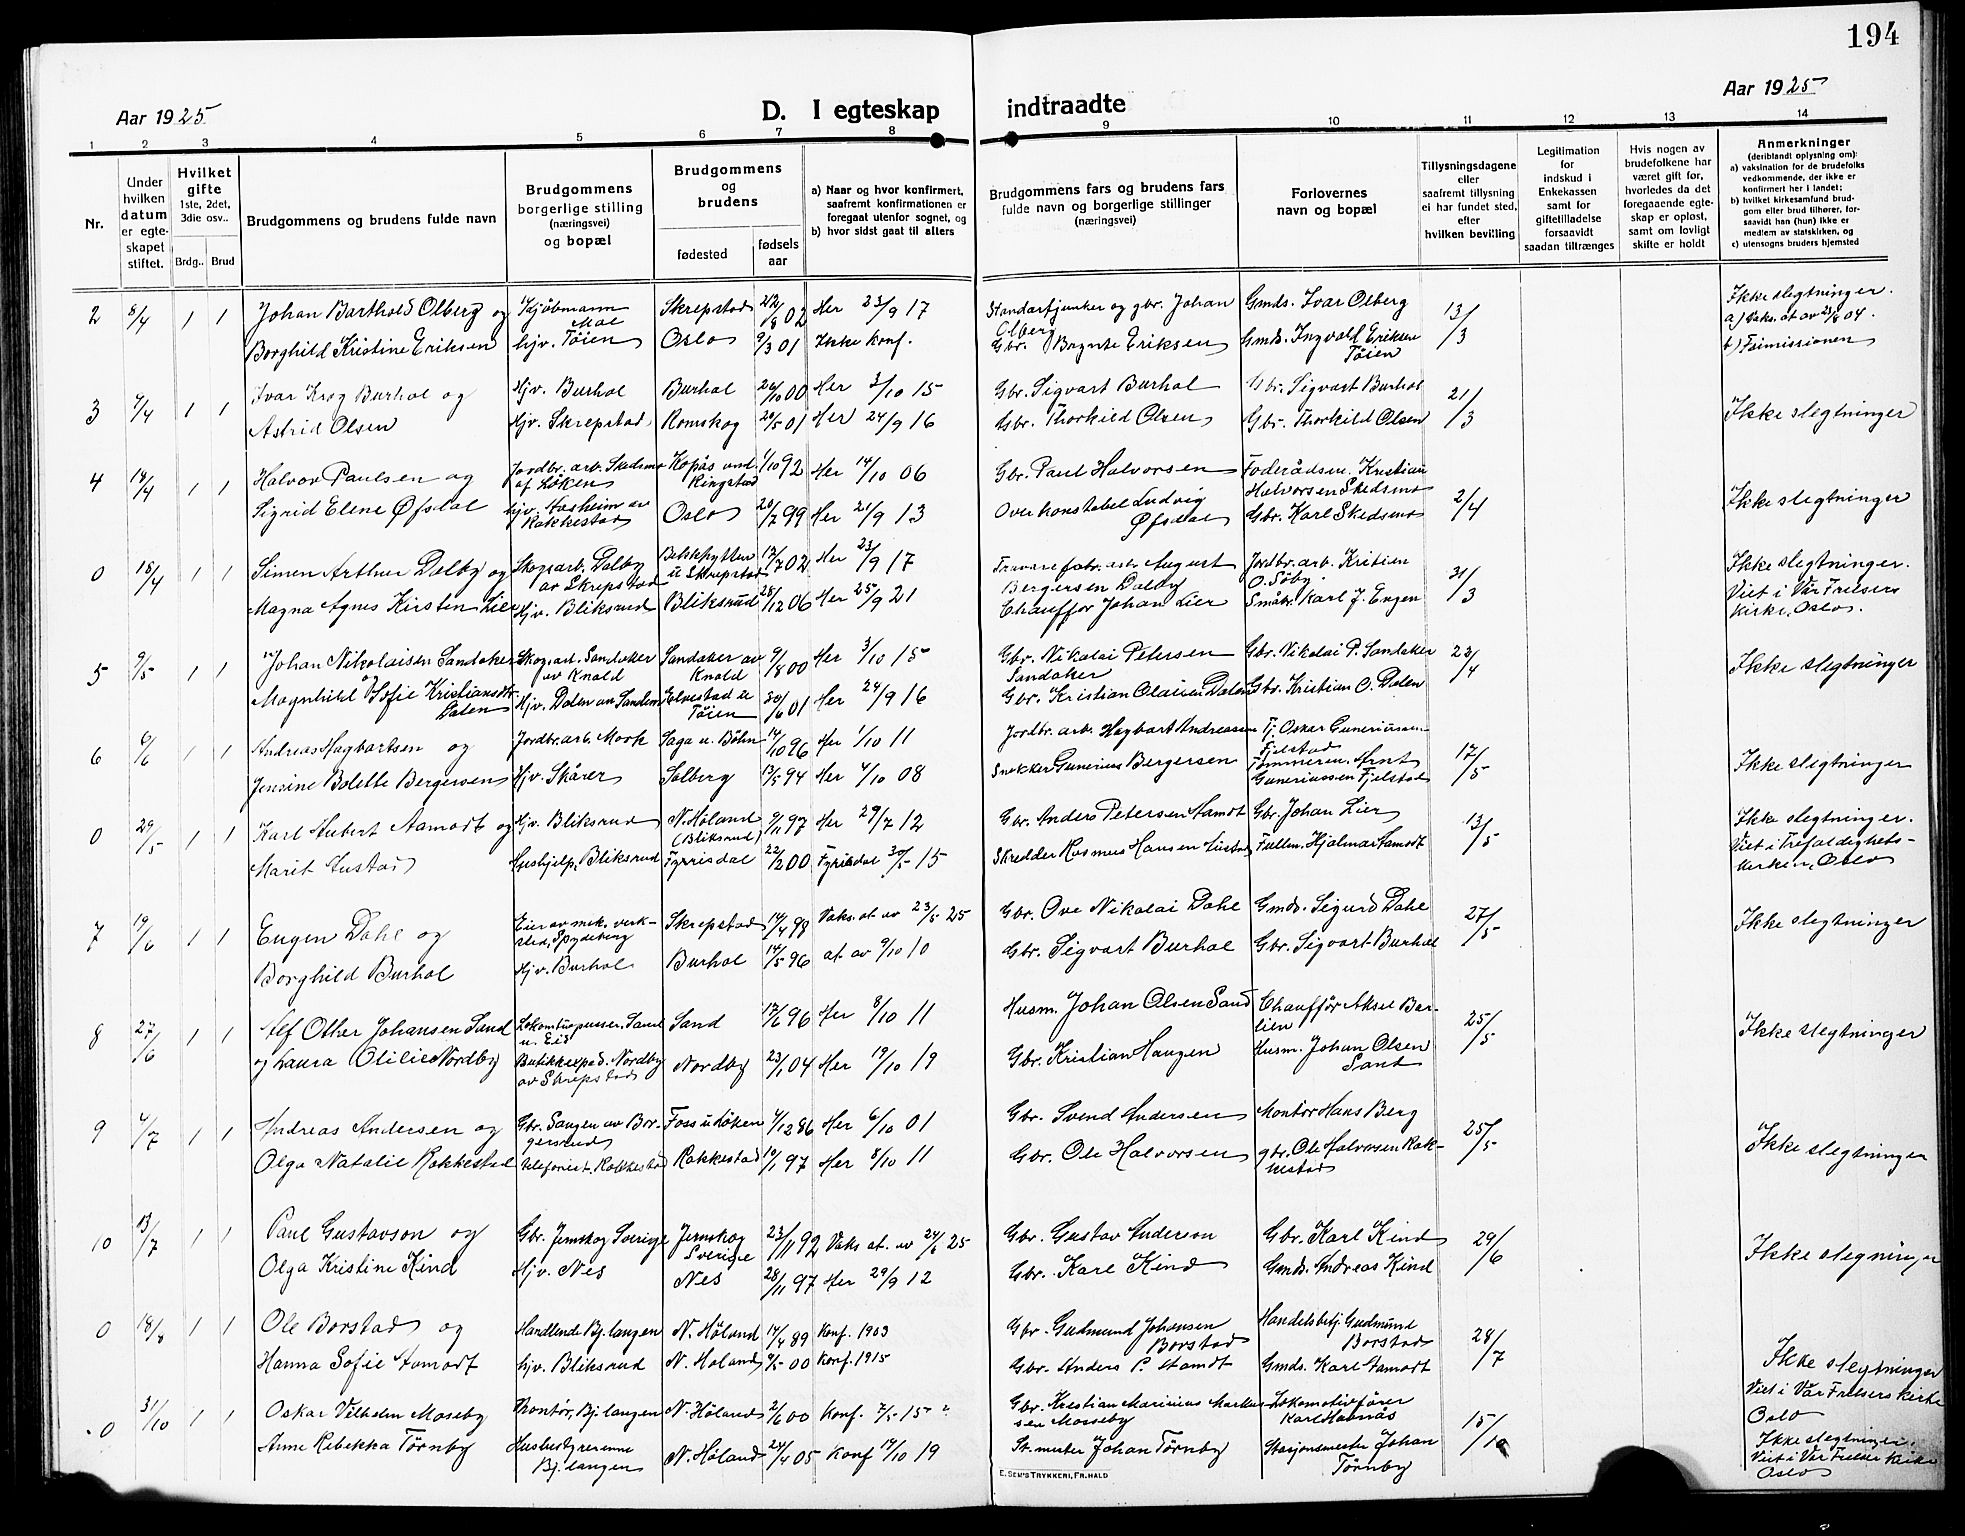 194
Aar 1925
D. I egteskap indtraadte
Aar 1925
1 2 3 4 5 6 7 8 9 10 11 12 13 14
Nr.
Under hvilken datum er egteskapet stiftet.
Hvilket gifte 1ste, 2det, 3die osv..
Brdg.. Brud
Brudgommens og brudens fulde navn
Brudgommens borgerlige stilling (næringsvei) og bopæl
Brudgommens og brudens
fødested
fødsels aar
a) Naar og hvor konfirmert, saafremt konfirmationen er foregaat utenfor sognet, og
b) hvor sidst gaat til alters
Brudgommens fars og brudens fars fulde navn og borgerlige stillinger (næringsvei)
Forlovernes navn og bopæl
Tillysningsdagene eller saafremt tillysning ei har fundet sted, efter hvilken bevilling
Legitimation for indskud i Enkekassen samt for giftetilladelse forsaavidt saadan tiltrænges
Hvis nogen av brudefolkene har været gift før, hvorledes da det foregaaende egteskap er opløst, samt om lovligt skifte er holdt
Anmerkninger (deriblandt oplysning om):
a) vaksination for de brudefolks vedkommende, der ikke er konfirmert her i landet;
b) hvilket kirkesamfund brudgom eller brud tilhører, forsaavidt han (hun) ikke er medlem av statskirken, og
c) utensogns bruders hjemsted
2 8/4 1 1 Johan Barthold Olberg og Skrepstad 22/8 02 Her 23/9 17 gbr. Johan Olberg Gmds. Ivar Olberg 13/3 Ikke slegtninger. a) Vaks. at av 23/8 04.
Borghild Kristine Eriksen hjv. Töien Oslo 9/3 01 Ikke konf. Gbr. Brynte Eriksen Gmds. Ingvald Eriksen Töien
3 7/4 1 1 Ivar Krog Burhol og Hjv. Burhol Burhol 26/10 00 Her 3/10 15 Gbr. Sigvart Burhol Gbr. Sigvart Burhol 21/3 Ikke slegtninger
Astrid Olsen Hjv. Skrepstad Romskog 20/5 01 Her 24/9 16 Gbr. Thorkild Olsen Gbr. Thorkild Olsen
4 14/4 1 1 Halvor Paulsen og Jordbr. arb. Skedsmo af Löken Kopås und. Ringstad 1/10 92 Her 14/10 06 Gbr. Paul Halvorsen Föderådsm. Kristian Halvorsen Skedsmo 2/4 Ikke slegtninger
Sigrid Elene Øfsdal hjv. Aasheim av Rakkestad Oslo 20/7 99 Her 21/9 13 Overkonstabel Ludvig Øfsdal Gbr. Karl Skedsmo
0 18/4 1 1 Simen Arthur Dalby og Skogsarb. Dalby av Skrepstad Bekkhytten u Skrepstad 17/7 02 Her 23/9 17 August Bergersen Dalby Jordbr. arb. Kristian O. Söby 31/3 Ikke slegtninger. Viet i Vår Frelsers kirke, Oslo.
Magna Agnes Kirsten Lier Hjv. Bliksrud Bliksrud 28/12 06 Her 25/9 21 Chauffør Johan Lier Småbr. Karl J. Engen
5 9/5 1 1 Johan Nikolaisen Sandaker Skogsarb. Sandaker av Knold Sandaker av Knold 9/8 00 Her 3/10 15 Gbr. Nikolai Petersen Sandaker Gbr. Nikolai P. Sandaker 23/4 Ikke slegtninger
Magnhild Sofie Kristiansdtr. Dalen Hjv. Dalen av Sandem Töien 30/6 01 Her 24/9 16 Gbr. Kristian Olaisen Dalen Gbr. Kristian O. Dalen
6 6/6 1 1 Andreas Hagbartsen og Jordbr. arb. Mork Saga u. Böhn 14/10 96 Her 1/10 11 Jordbr. arb. Hagbart Andreassen Tj. Oskar Guneriussen Fjelstad 17/5 Ikke slegtninger
Jensine Bolette Bergersen Hjv. Skårer Solberg 13/5 94 Her 4/10 08 Snekker Gunerius Bergersen Tömmerm. Arnt Guneriussen Fjelstad
0 29/5 1 1 Karl Hubert Aamodt og Hjv. Bliksrud N. Höland (Bliksrud) 9/11 97 Her 29/7 12 Gbr. Anders Petersen Aamodt Gbr. Johan Lier 13/5 Ikke slegtninger. Viet i Trefoldighets-kirken, Oslo
Marit Austad Hushjelp, Bliksrud Fyrrisdal 22/2 00 Fyrisdal 30/5 15 Skredder Rasmus Hansen Austad Fullm. Hjalmar Aamodt
7 19/6 1 1 Eugen Dahl og Eier av mek. verksted, Spydeberg Skrepstad 14/4 98 Vaks. at av 23/5 25 Gbr. Ove Nikolai Dahl Gmds. Sigurd Dahl 27/5 Ikke slegtninger
Borghild Burhol Hjv. Burhol Burhol 14/5 96 at av 9/10 10 Gbr. Sigvart Burhol Gbr. Sigvart Burhol
8 27/6 1 1 Alf Other Johansen Sand Lokomtivpusser, Sand u. Eid Sand 17/6 96 Her 8/10 11 Husm. Johan Olsen Sand Chauffør Aksel Barlien 25/5 Ikke slegtninger
og Laura Otilie Nordby Butikkexped. Nordby av Skrepstad Nordby 23/1 04 Her 19/10 19 Gbr. Kristian Haugen Husm. Johan Olsen Sand
9 4/7 1 1 Andreas Andersen og Gbr. Saugen av Borgersrud Foss u Löken 4/12 86 Her 6/10 01 Gbr. Svend Andersen Montör Hans Berg 25/5 Ikke slegtninger
Olga Natalie Rakkestad telefonist, Rakkestad Rakkestad 19/1 97 Her 8/10 11 Gbr. Ole Halvorsen gbr. Ole Halvorsen Rakkestad
10 13/7 1 1 Paul Gustavson og Gbr. Jernskog Sverige Jernskog Sverige 23/11 92 Vaks at. av 24/6 25 Gbr. Gustav Anderson Gbr. Karl Kind 29/6 Ikke slegninger
Olga Kristine Kind Hjv. Nes Nes 28/11 97 Her 29/9 12 Gbr. Karl Kind Gmds. Andreas Kind
0 18/8 1 1 Ole Borstad og Handlende Bj.langen N. Höland 14/4 89 Konf. 1903 Gbr. Gudmund Johansen Borstad Handelsbetj. Gudmund Borstad 28/7 Ikke slegtninger Viet i Vår Frelsers kirke Oslo
Hanna Sofie Aamodt hjv. Bliksrud N. Höland 00 Konf. 1915 Gbr. Anders P. Aamodt Gmds. Karl Aamodt
0 31/10 1 1 Oskar Vilhelm Moseby Montör, Bj.langen N. Höland 2/6 00 Konf. 7/5 15 Gbr. Kristian Marinius Markussen Mosseby Lokomotivförer Karl Havnås 15/10 Ikke slegtninger. Viet i Vår Frelsers kirke Oslo
Anne Rebekka Törnby Husbestyrerinne Bj.langen N. Höland 24/4 05 Konf 19/10 19 St. mester Johan Törnby Stasjonsmester Johan Törnby
E. SEM'S TRYKKERI, FR.HALD